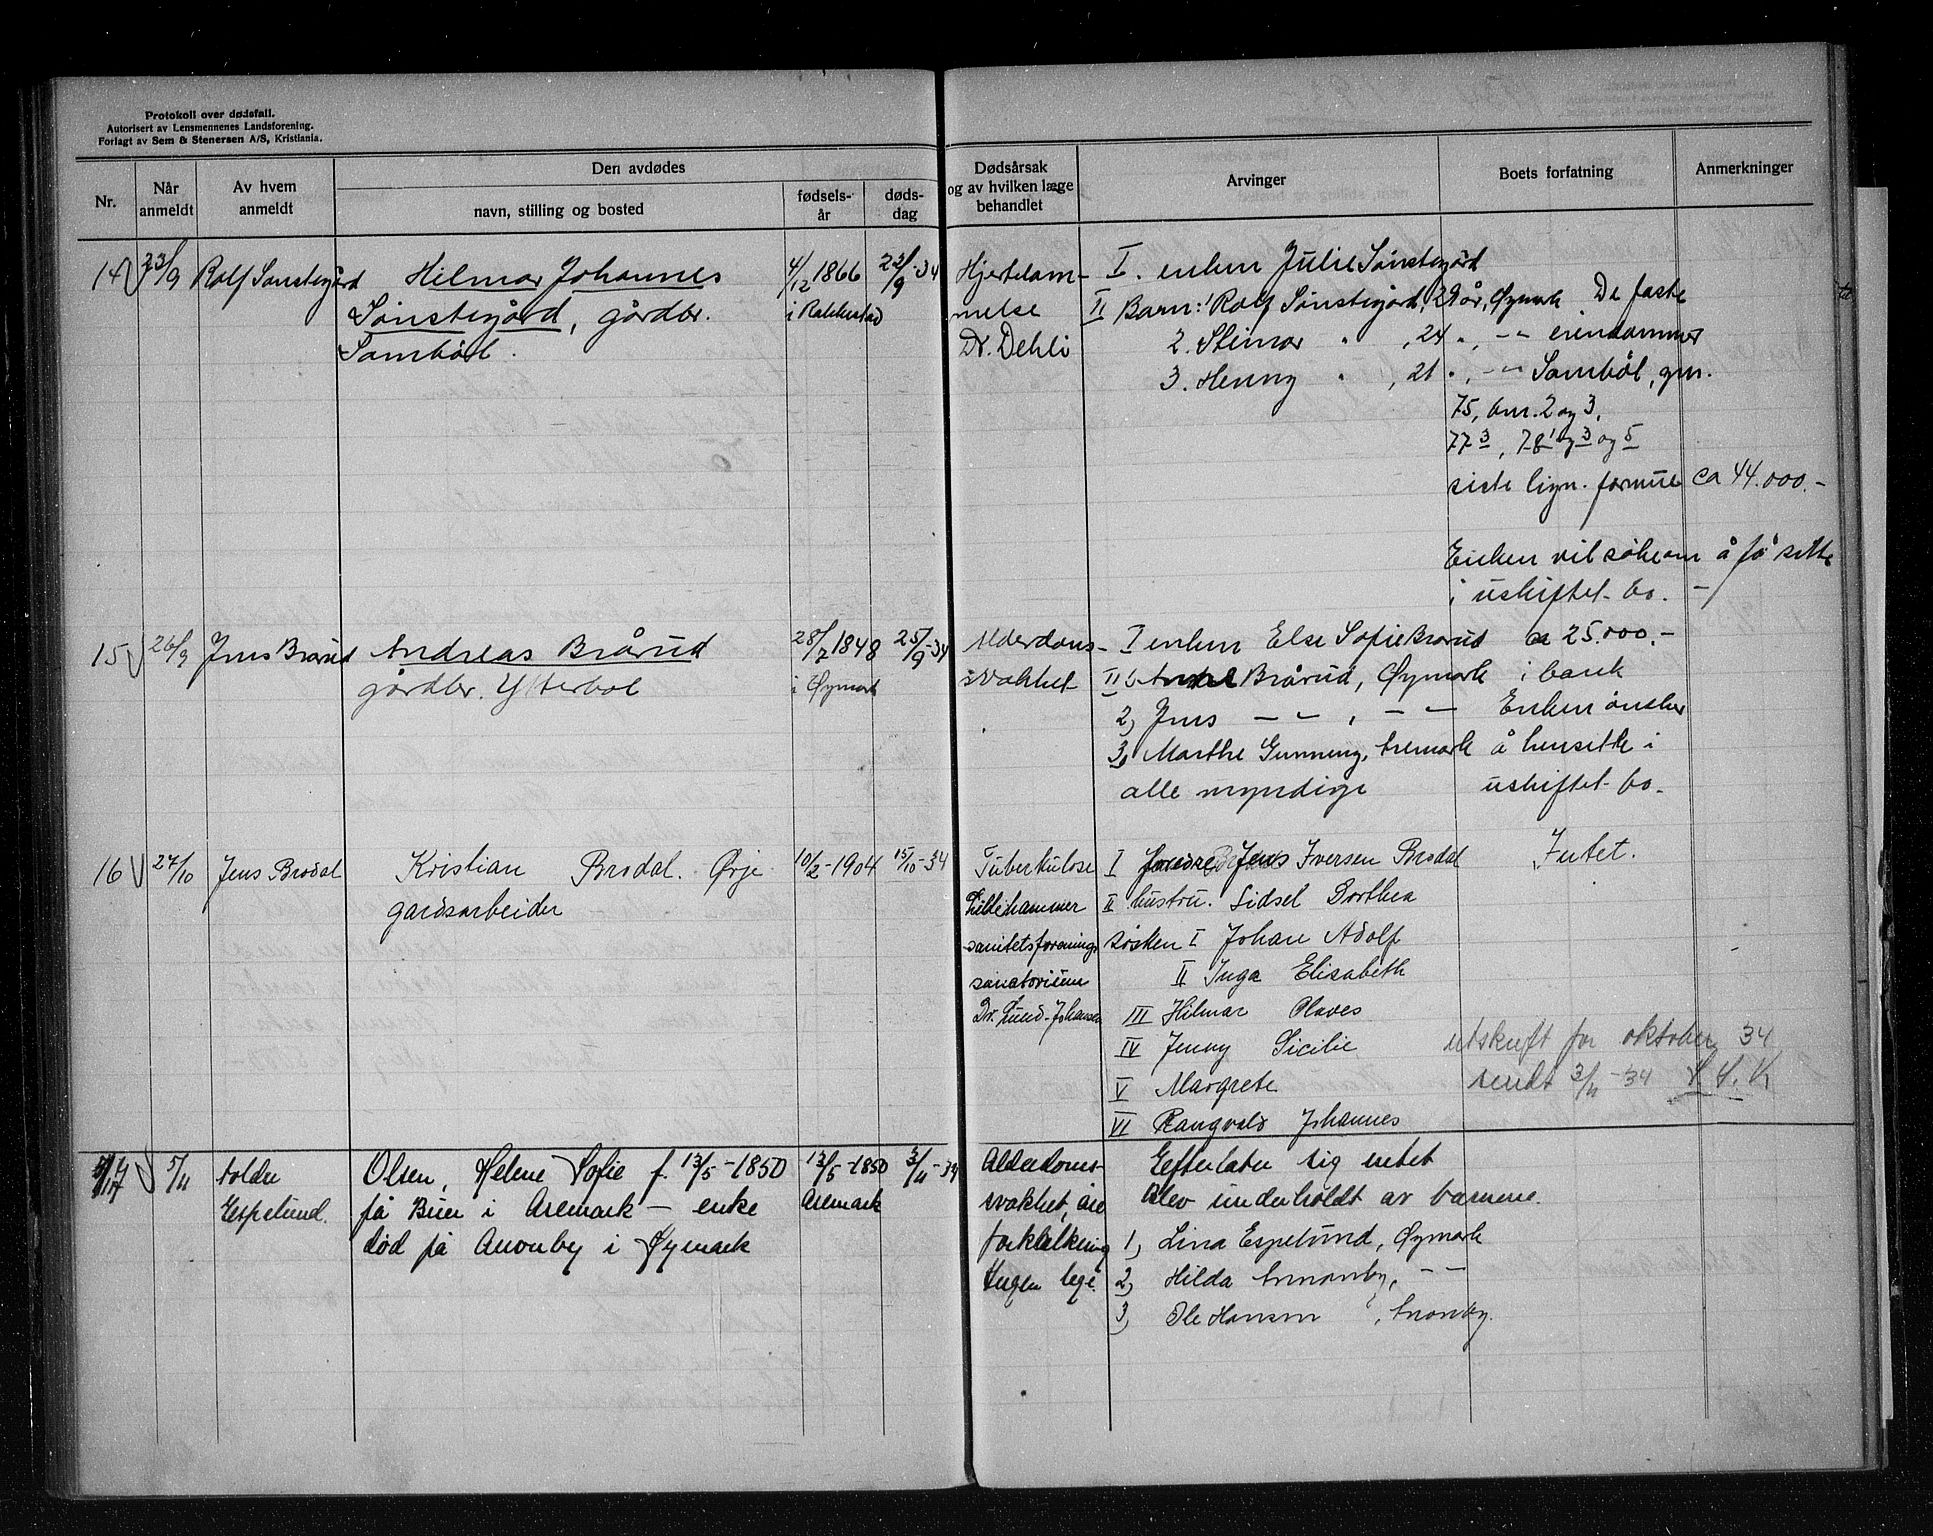 Protokoll over dødsfall.
Autorisert av Lensmennenes Landsforening.
Forlagt av Sem & Stenersen A/S, Kristiania.
Nr.
Når anmeldt
Av hvem anmeldt
Den avdødes
navn, stilling og bosted
fødsels-år
døds-dag
Dødsårsak og av hvilken læge behandlet
Arvinger
Boets forfatning
Anmerkninger
14 23/9 Rolf Sønstegård
Hilmar Johannes
Sønstegård, gårdbr.
Sambøl.
4/12 1866
i Rakkestad
23/9-34
Hjertelam-
melse
Dr. Dehli
I. enken Julie Sønstegård
II Barn: 1 Rolf Sønstegård, 29 år, Øymark
2. Steinar " , 24 ", -"-
3. Henny " , 21 ", -"-
De faste
eiendommer
Sambøl, gnr.
75, bnr. 2 og 3,
77 3, 78 1 og 3 og 5
siste lign. formue ca 44.000.-
Enken vil søke om å få sitte
i uskiftet bo. -
15 26/9 Jens Brårud
Andreas Brårud
gårdbr. Ytterbøl
28/7 1848
i Øymark
25/9-34
Alderdoms-
svakhet
I enken Else Sofie Brårud
II 1, Brårud, Øymark
2, Jens -"- , -"-
3, Marthe Gunneng, Aremark
alle myndige
ca 25.000.-
i bank
Enken ønsker
å hensitte i
uskiftet bo.
16 27/10 Jens Brodal
Kristian Brodal. Ørje.
gardsarbeider
10/2-1904
15/10-34
Tuberkulose
Lillehammer
sanitetsforenings
sanatorium
Dr. Lund-Johansen
I foreldre Jens Iversen Brodal
II hustru. Sidsel Dorthea
søsken I Johan Adolf
II Inga Elisabeth
III Hilmar Olaves
IV Jenny Sicilie
V Margrete
VI Rangvald Johannes
Intet.
utskrift for oktober 34
sendt 3/11-34
17 5/11
Espelund.
Olsen, Helene Sofie f. 13/5-1850
på Buer i Aremark - enke
død på Anonby i Øymark
13/5-1850
Aremark
3/11-34
Alderdoms-
svakhet, åre
forkalkning
Ingen lege.
Efterlater sig intet
Blev underholdt av barnene.
1, Lina Espelund, Øymark
2, Hilda Anonby, -"-
3, Ole Hansen , Anonby.